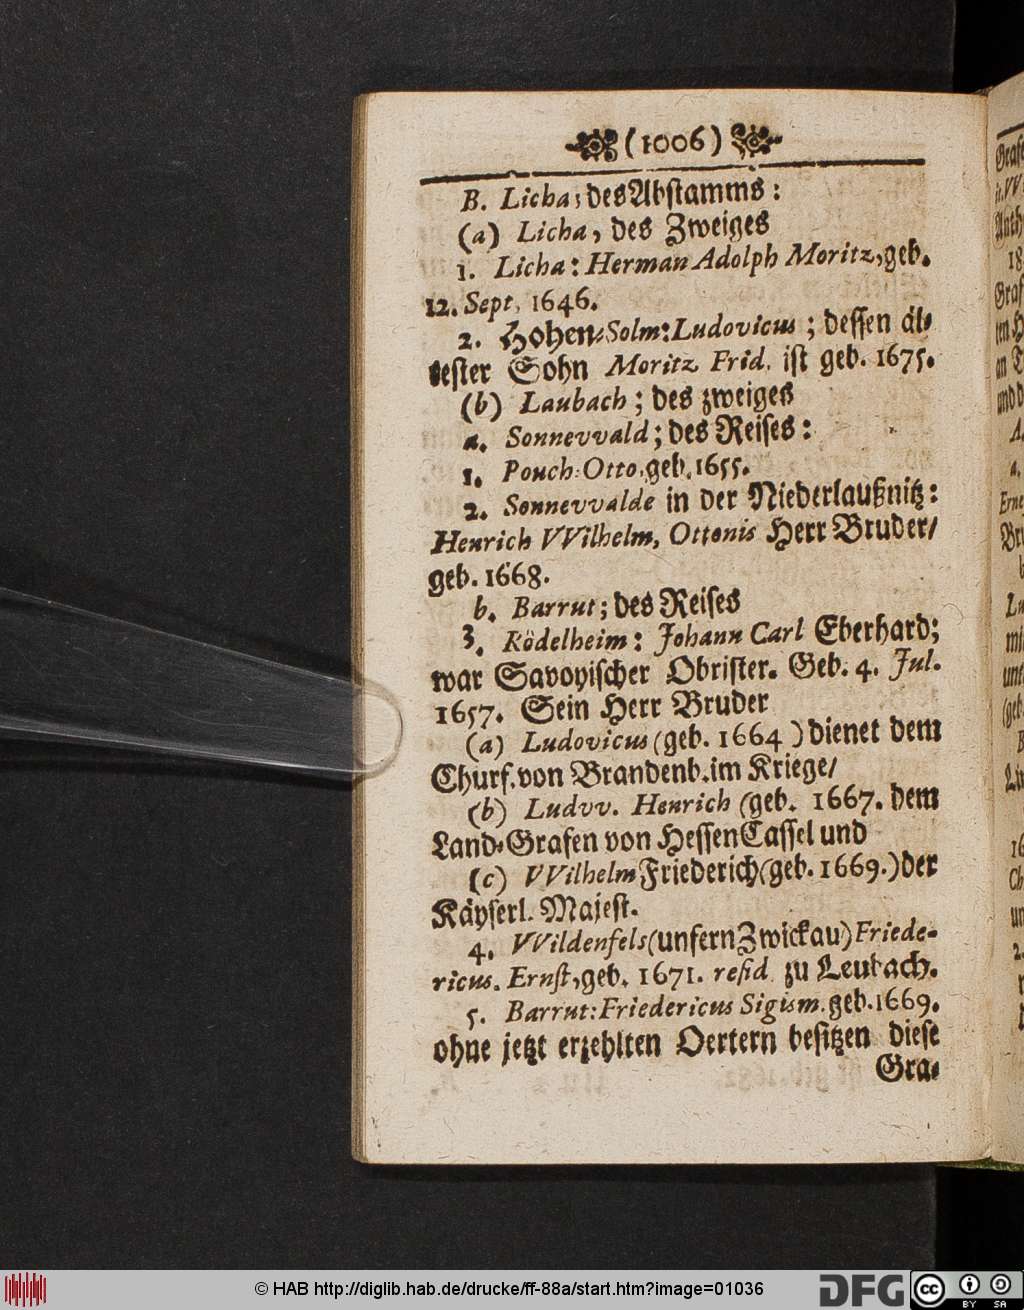 (1006)
B. Licha; des Abstamms:
(a) Licha, des Zweiges
1. Licha: Herman Adolph Moritz, geb.
12. Sept. 1646.
2. Hohen-Solm: Ludovicus; dessen äl-
tester Sohn Moritz Frid. ist geb. 1675.
(b) Laubach; des zweiges
a. Sonnevvald; des Reises:
1. Pouch: Otto, geb. 1655.
2. Sonnevvalde in der Niederlaußnitz:
Henrich VVilhelm, Ottonis Herr Bruder/
geb. 1668.
b. Barrut; des Reises
3. Rödelheim: Johann Carl Eberhard;
war Savoyischer Obrister. Geb. 4. Jul.
1657. Sein Herr Bruder
(a) Ludovicus (geb. 1664) dienet dem
Churf. von Brandenb. im Kriege/
(b) Ludvv. Henrich (geb. 1667. dem
Land-Grafen von Hessen Cassel und
(c) VVilhelm Friederich (geb. 1669.) der
Käyserl. Majest.
4. VVildenfels (unfern Zwickau) Friede-
ricus. Ernst, geb. 1671. resid. zu Leubach.
5. Barrut: Friedericus Sigism. geb. 1669.
ohne jetzt erzehlten Oertern besitzen diese
Gra-
© HAB http://diglib.hab.de/drucke/ff-88a/start.htm?image=01036
DFG
cc BY SA